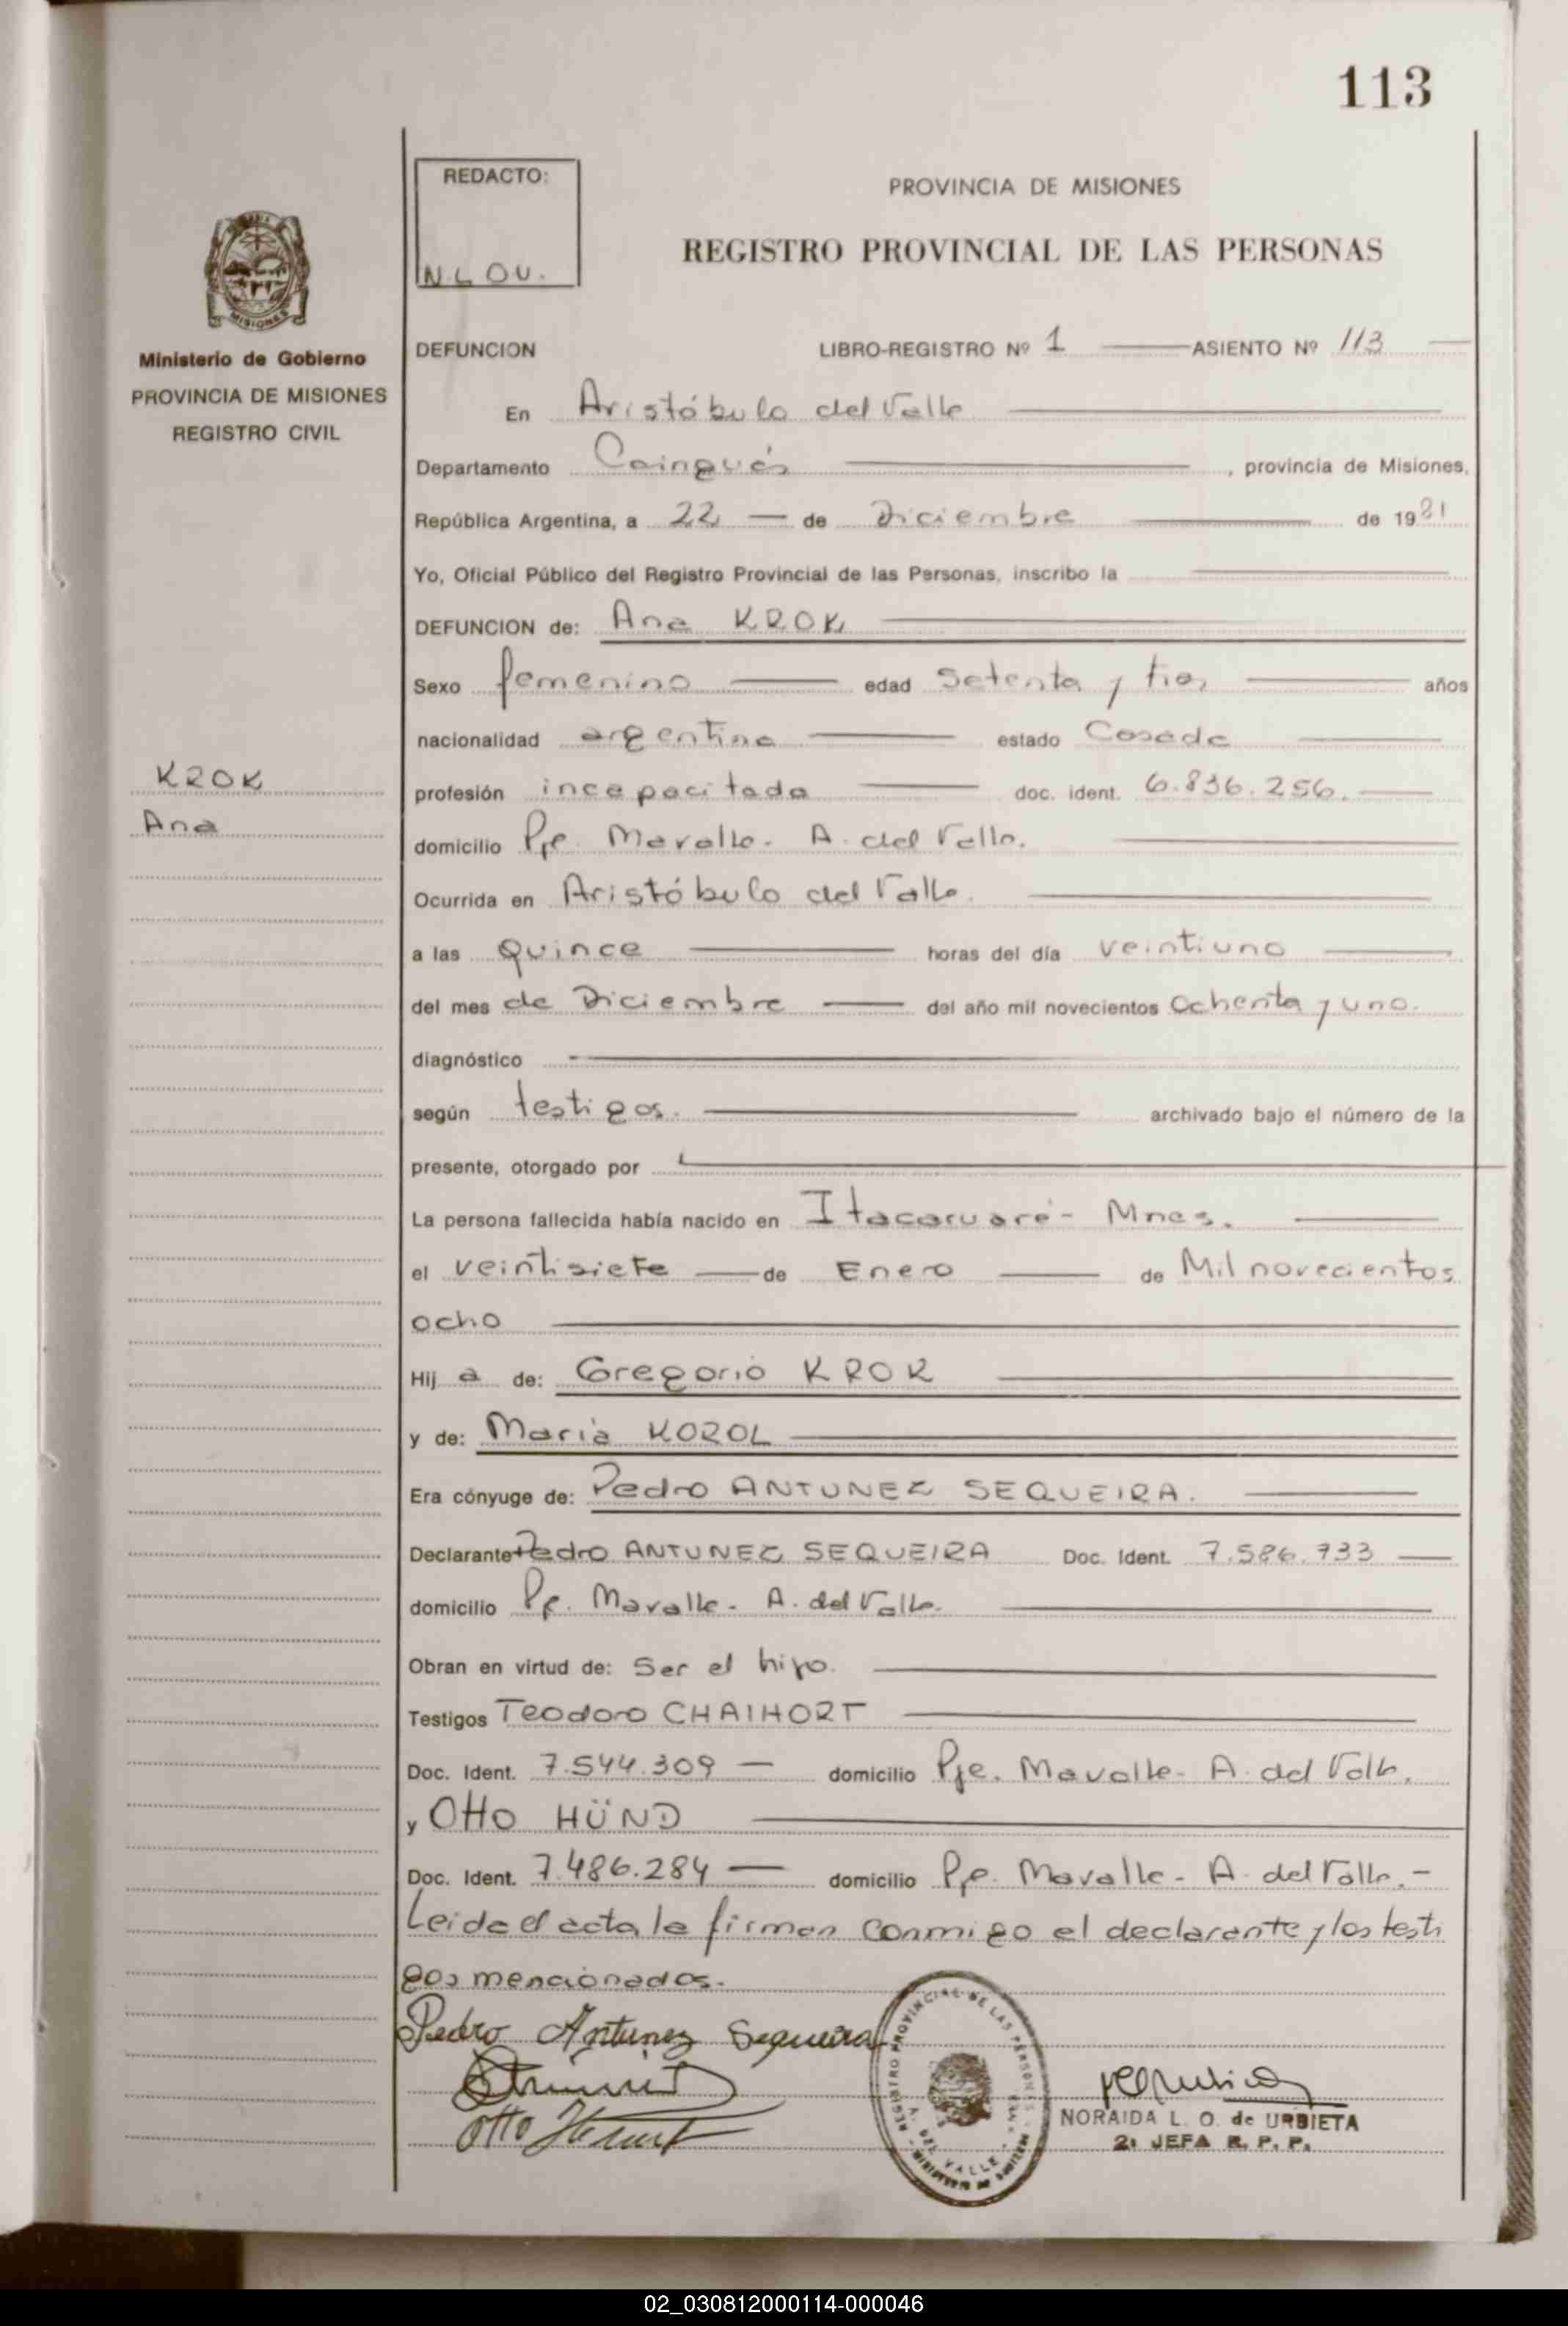 113
REDACTO:
N.L.OU.
PROVINCIA DE MISIONES
REGISTRO PROVINCIAL DE LAS PERSONAS
MISIONES
Ministerio de Gobierno
PROVINCIA DE MISIONES
REGISTRO CIVIL
DEFUNCION LIBRO-REGISTRO Nº 1 ASIENTO Nº 113
En Aristóbulo del Valle
Departamento Cainguás, provincia de Misiones,
República Argentina, a 22 de Diciembre de 1981
Yo, Oficial Público del Registro Provincial de las Personas, inscribo la
DEFUNCION de: Ana KROK
Sexo femenino edad setenta y tres años
nacionalidad argentina estado Casada
KROK
Ana
profesión incapacitada doc. ident. 6.836.256.
domicilio Pje. Mavalle. A. del Valle.
Ocurrida en Aristóbulo del Valle.
a las quince horas del día veintiuno
del mes de Diciembre del año mil novecientos Ochenta y uno.
diagnóstico
según testigos. archivado bajo el número de la
presente, otorgado por
La persona fallecida había nacido en Itacaruaré- Mnes.
el veintisiete de Enero de Mil novecientos
ocho
Hij a de: Gregorio KROK
y de: María KOROL
Era cónyuge de: Pedro ANTUNEZ SEQUEIRA.
Declarante Pedro ANTUNEZ SEQUEIRA Doc. Ident. 7.586.733
domicilio Pje. Mavalle- A. del Valle.
Obran en virtud de: Ser el hijo.
Testigos Teodoro CHAIHORT
Doc. Ident. 7.544.309 domicilio Pje. Mavalle- A. del Valle.
y Otto HÜND
Doc. Ident. 7.486.284 domicilio Pje. Mavalle- A. del Valle.-
Leída el acta, la firman conmigo el declarante y los testi
gos mencionados.
Pedro Antunez Sequeira
Otto
REGISTRO PROVINCIAL DE LAS PERSONAS
A. DEL VALLE
NORAIDA L. O. de URBIETA
2ª JEFA R. P. P.
02_030812000114-000046